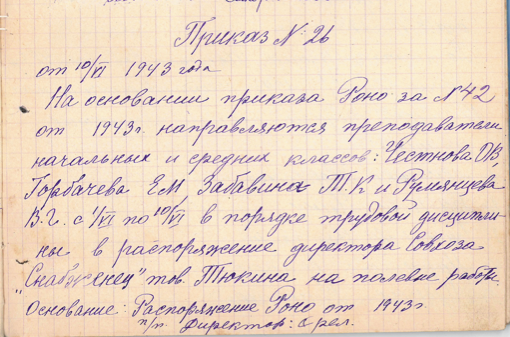 Приказ № 26
от 10/VI 1943 года
На основании приказа Роно за №42
от 1943 г. направляются преподаватели
начальных и средних классов: Честнова О.В,
Горбачева Е.М Забавина Т.К и Румянцева
В.Г. с 1/VI по 10/VI в порядке трудовой дисципли-
ны в распоряжение директора Совхоза
„Снабженец" тов. Тюкина на полевые работы.
Основание: Распоряжение Роно от 1943 г
п/п. Директор: